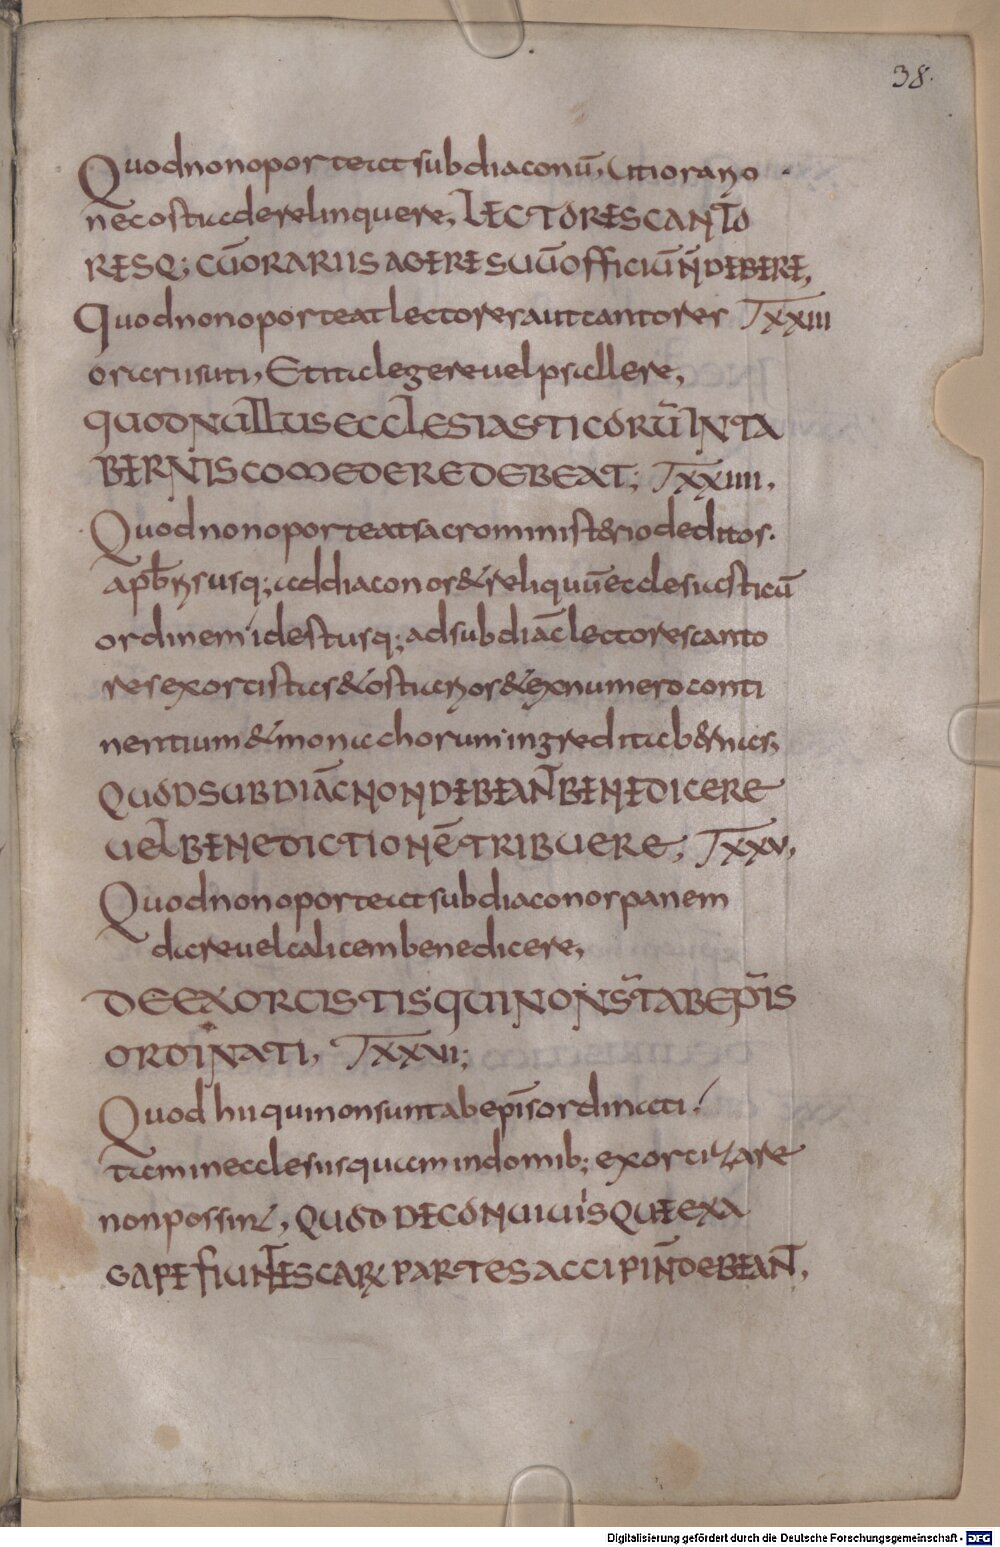 38.
Quod non oporteat subdiaconū, uti orario
nec ostia derelinquere, LECTORES CANTO
RESQ; CŪ ORARIIS AGERE SUŪ OFFICIŪ N̄ DEBERE,
Quod non oporteat lectores aut cantores TXXIII
orariis uti, Et ita legere uel psallere,
QUOD NULLUS ECCLESIASTICORŪ IN TA
BERNIS COMEDERE DEBEAT; TXXIIII,
Quod non oporteat sacro minist&rio deditos.
a pb̄rıs usq; ad diaconos & reliquū ecclesiasticū
ordinem id est usq; ad subdiāc lectores canto
res exorcistas & ostiarios & ex numero conti
nentium & monachorum ingredi tab&rnas,
QUOD SUBDIĀC NON DEBEAN̄T BENEDICERE
UEL BENEDICTIONĒ TRIBUERE, TXXV,
Quod non oporteat subdiaconos panem
dare uel calicem benedicere,
DE EXORCISTIS QUI NON S̄T AB EP̄IS
ORDINATI, TXXVI;
Quod hii qui non sunt ab ep̄is ordinati
tam in ecclesiis quam in domib; exorcizare
non possint, QUOD DE CONUIUIIS QUE EX A
GAPE FIUNT ESCARꝜ PARTES ACCIPI N̄ DEBEANT,
Digitalisierung gefördert durch die Deutsche Forschungsgemeinschaft - DFG